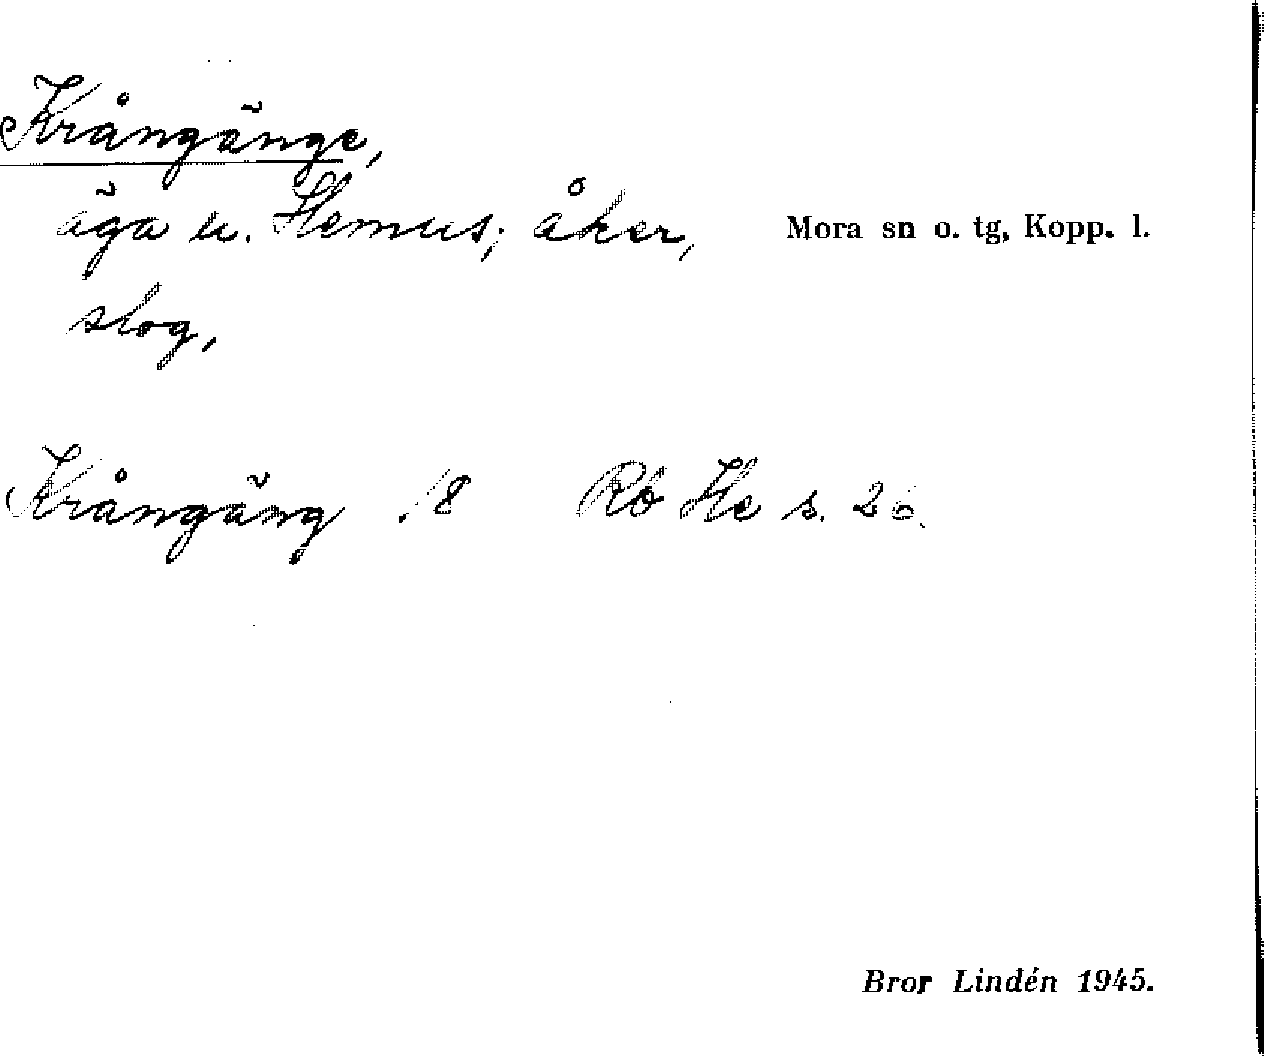 Krångänge,
äga u. Hemus; åker,
Mora sn o. tg, Kopp. l.
slog,
Krångäng 18 Rb He s. 26.
Bror Lindén 1945.